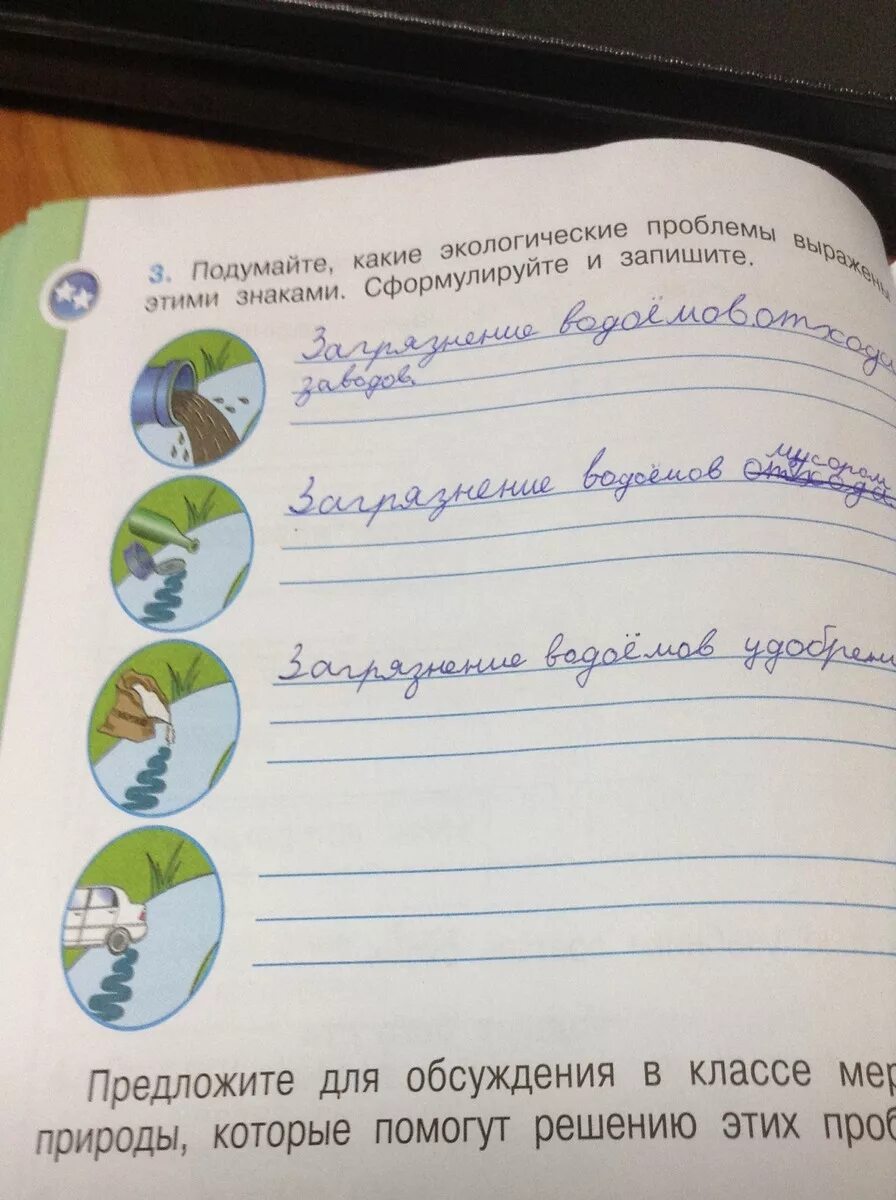 3. Подумайте, какие экологические проблемы выражены
этими знаками. Сформулируйте и запишите.
Загрязнение водоёмов отхода
заводов.
мусором
Загрязнение водоёмов отхода
Загрязнение водоёмов удобрени
Предложите для обсуждения в классе мер
природы, которые помогут решению этих проб